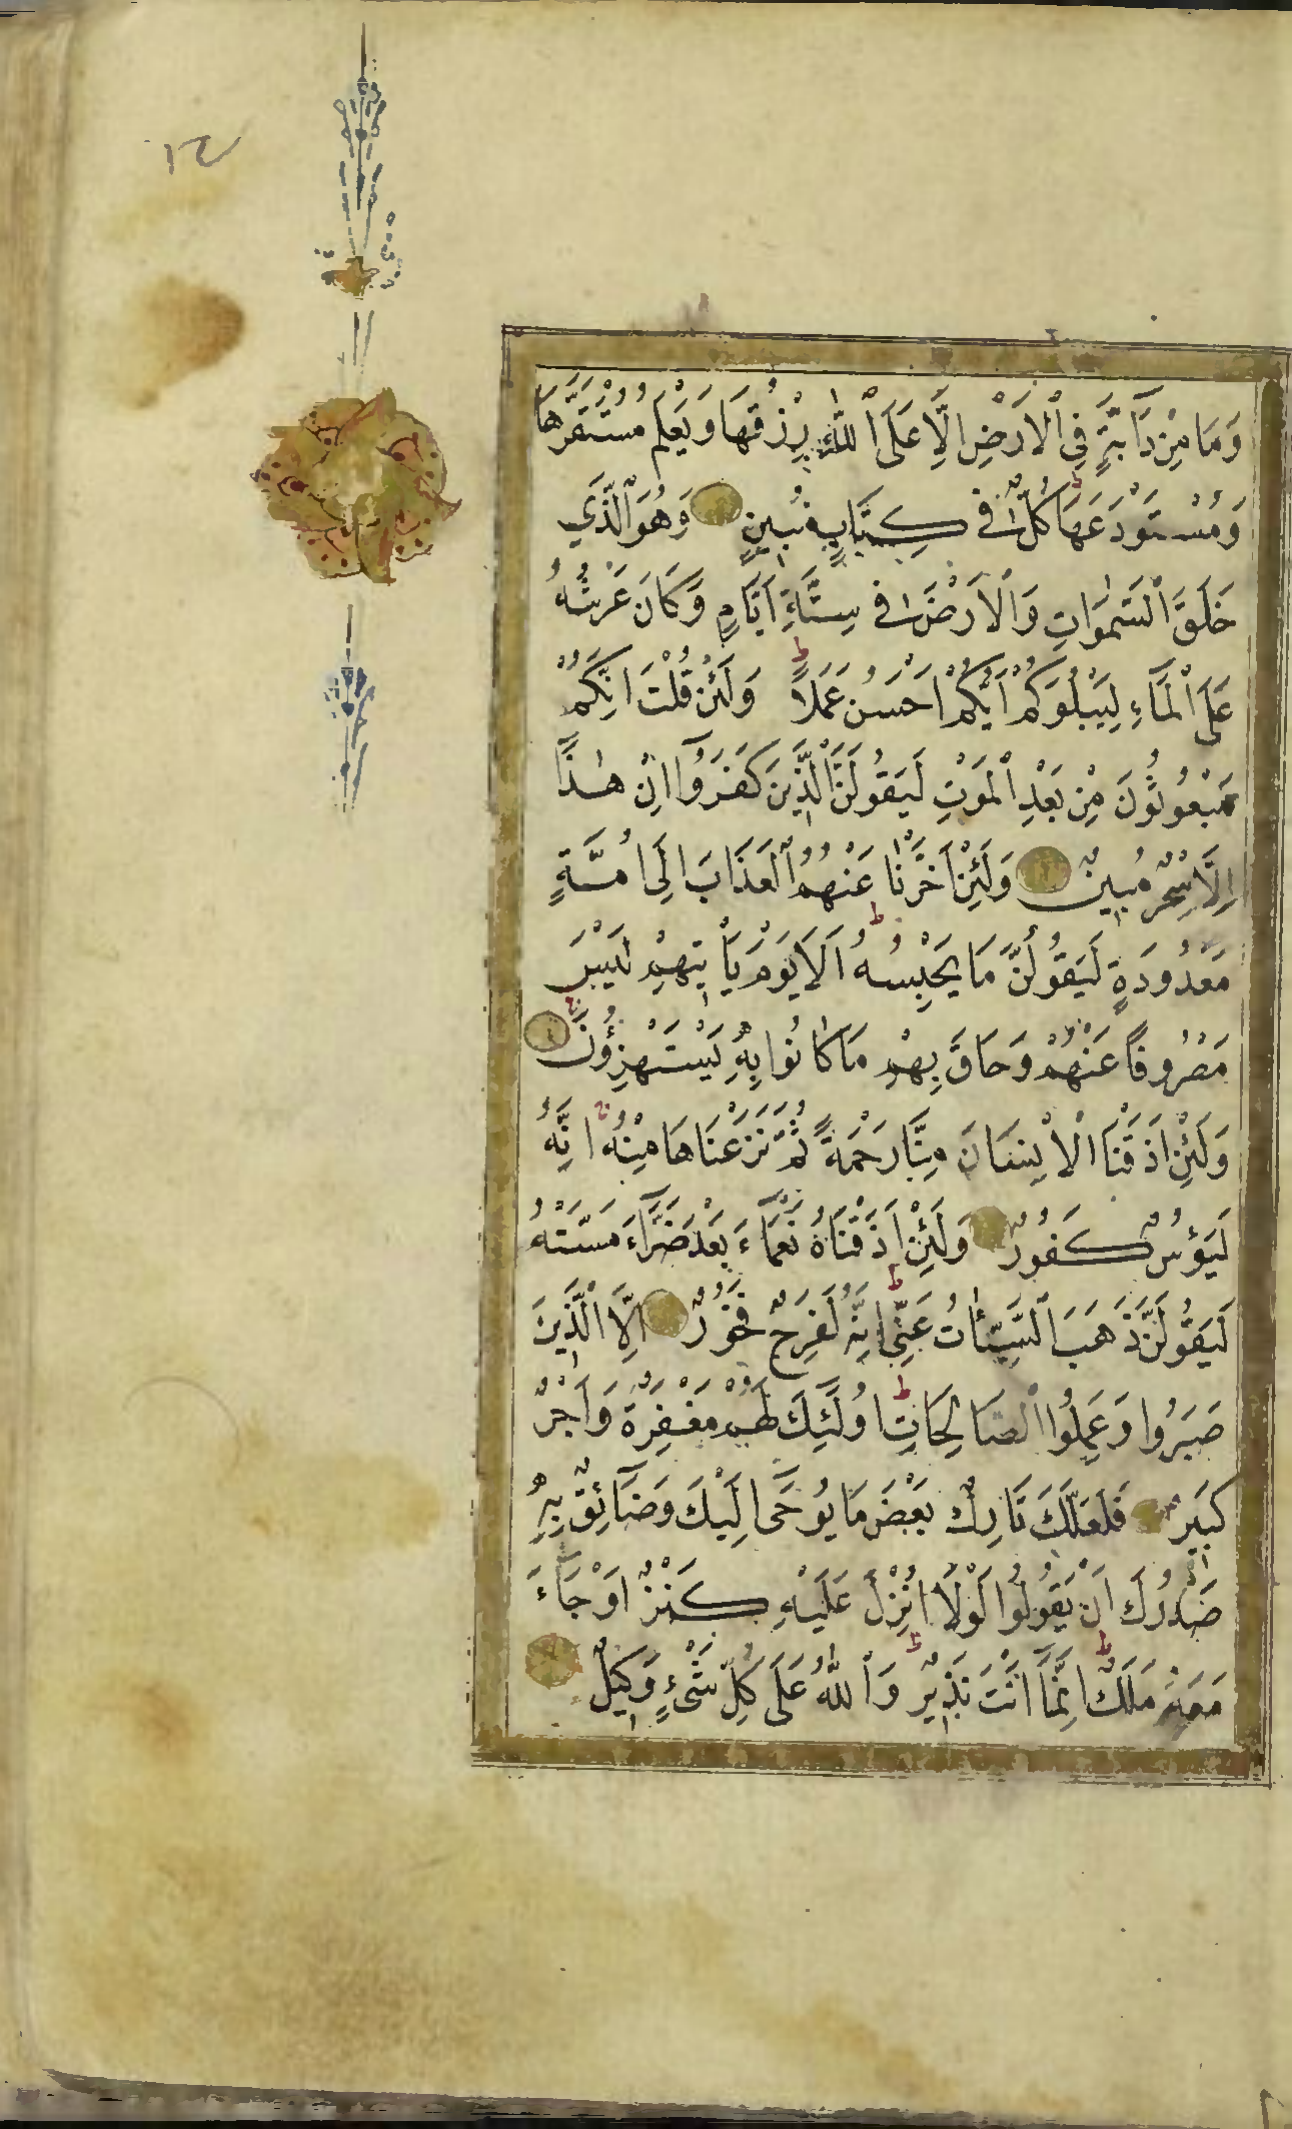 ١٢
وَمَا مِنْ دَآبَّةٍ فِي ٱلْاَرْضِ اِلَّا عَلَى ٱللّٰهِ رِزْقُهَا وَيَعْلَمُ مُسْتَقَرَّهَا
وَمُسْتَوْدَعَهَا ط كُلٌّ فِى كِتَابٍ مُبِينٍ وَهُوَ ٱلَّذِي
خَلَقَ ٱلسَّمٰوَاتِ وَٱلْاَرْضَ فِى سِتَّةِ اَيَّامٍ وَكَانَ عَرْشُهُ
عَلَى ٱلْمَآءِ لِيَبْلُوَكُمْ اَيُّكُمْ اَحْسَنُ عَمَلًا ط وَلَئِنْ قُلْتَ اِنَّكُمْ
مَبْعُوثُونَ مِنْ بَعْدِ ٱلْمَوْتِ لَيَقُولَنَّ ٱلَّذِينَ كَفَرُوٓا اِنْ هٰذَٓا
اِلَّا سِحْرٌ مُبِينٌ وَلَئِنْ اَخَّرْنَا عَنْهُمُ ٱلْعَذَابَ اِلَٓى اُمَّةٍ
مَعْدُودَةٍ لَيَقُولُنَّ مَا يَحْبِسُهُ ط اَلَا يَوْمَ يَأْتِيهِمْ لَيْسَ
مَصْرُوفًا عَنْهُمْ وَحَاقَ بِهِمْ مَا كَانُوا بِهِ يَسْتَهْزِؤُنَ
وَلَئِنْ اَذَقْنَا ٱلْاِنْسَانَ مِنَّا رَحْمَةً ثُمَّ نَزَعْنَاهَا مِنْهُ اِنَّهُ
لَيَؤُسٌ كَفُورٌ وَلَئِنْ اَذَقْنَاهُ نَعْمَآءَ بَعْدَ ضَرَّآءَ مَسَّتْهُ
لَيَقُولَنَّ ذَهَبَ ٱلسَّيِّئَاتُ عَنِّى ط اِنَّهُ لَفَرِحٌ فَخُورٌ اِلَّا ٱلَّذِينَ
صَبَرُوا وَعَمِلُوا ٱلصَّالِحَاتِ ط اُولَٓئِكَ لَهُمْ مَغْفِرَةٌ وَاَجْرٌ
كَبِيرٌ فَلَعَلَّكَ تَارِكٌ بَعْضَ مَا يُوحَٓى اِلَيْكَ وَضَآئِقٌ بِهِ
صَدْرُكَ اَنْ يَقُولُوا لَوْلَٓا اُنْزِلَ عَلَيْهِ كَنْزٌ اَوْ جَآءَ
مَعَهُ مَلَكٌ ط اِنَّمَٓا اَنْتَ نَذِيرٌ ط وَٱللّٰهُ عَلَى كُلِّ شَىْءٍ وَكِيلٌ